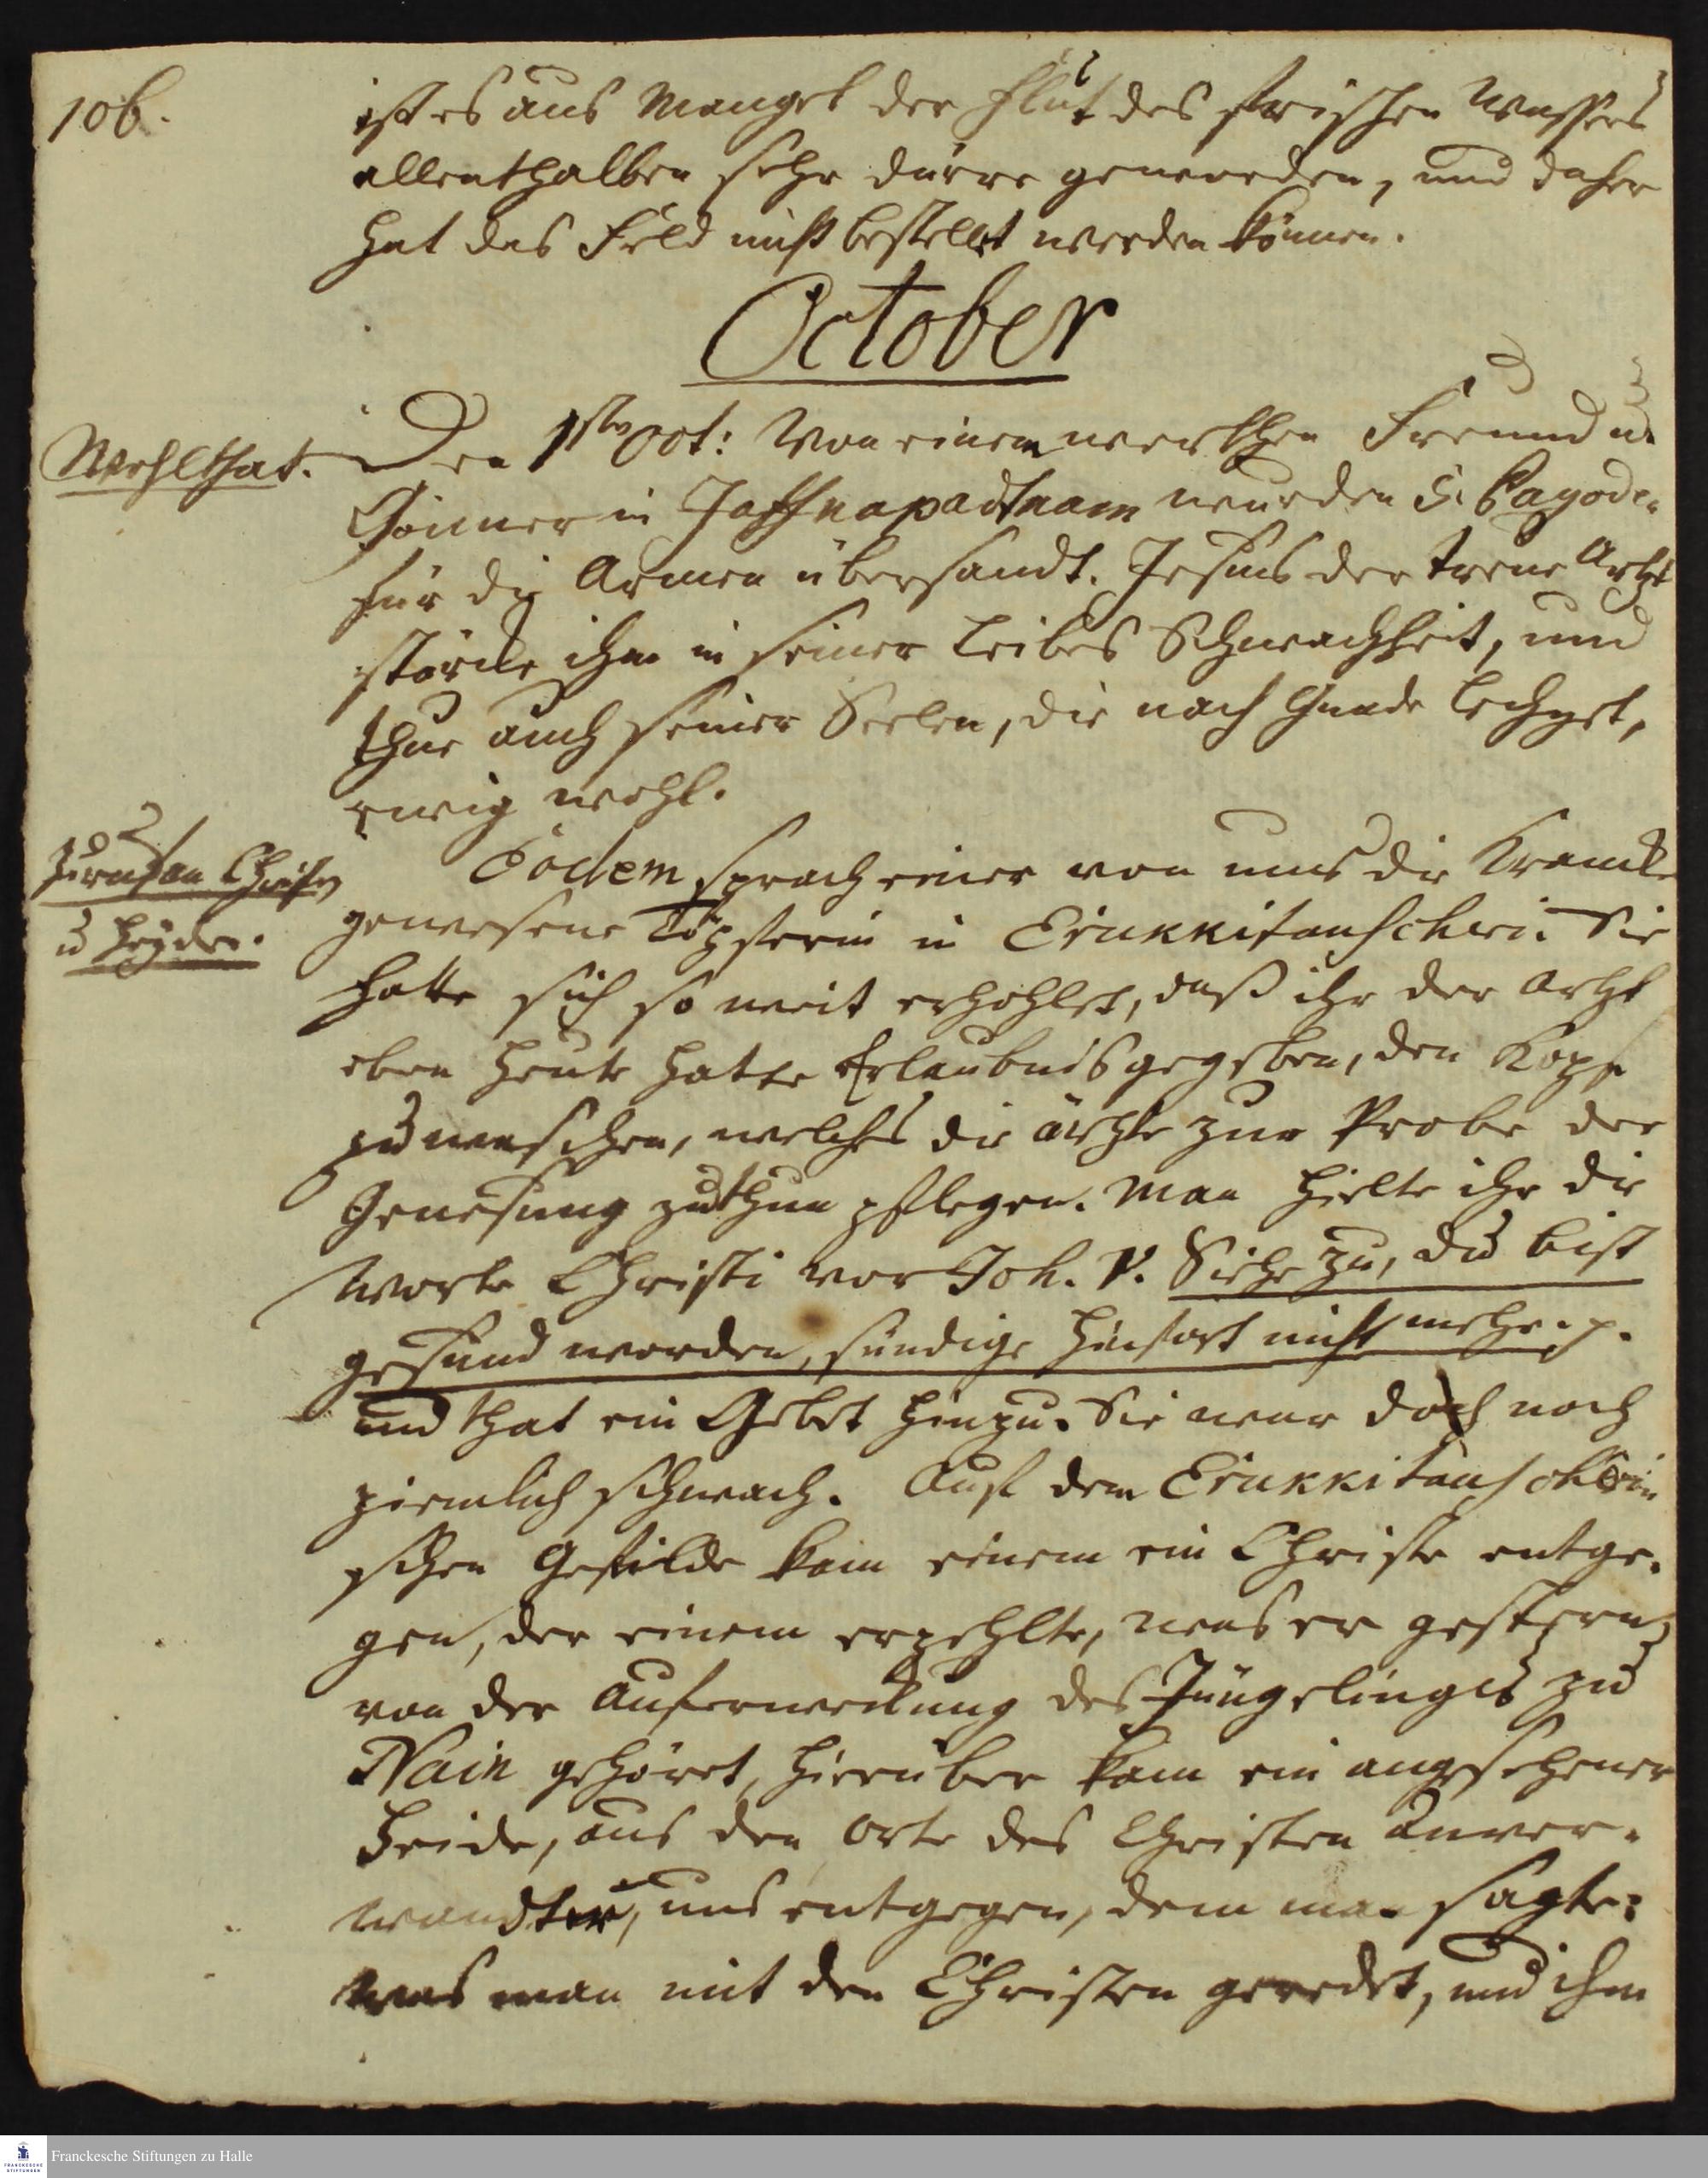 106.
ist es aus Mangel der Flut des frischen Wassers
allenthalben sehr dürre geworden, und daher
hat das Feld nicht bestellt werden können.
October
Wohlthat.
Den 1sten Oct: Von einem werthen Freund u.
Gönner in Jaffnapatnam wurden 5. Pagode.
für die Armen übersandt. Jesus der treue Artzt
stärcke ihn in seiner Leibes Schwachheit, und
thue auch seiner Seelen, die nach Gnade lechzet,
ewig wohl.
Zuruf an Christen
u Heyden.
Eodem sprach einer von uns die Kranck
gewesene Töpferin in Erukkitanscheri. Sie
hatte sich so weit erhohlet, daß ihr der Artzt
eben heute hatte Erlaubnis gegeben, den Kopf
zu waschen, welches die ärtzte zur Probe der
Genesung zu thun pflegen. Man hielte ihr die
Worte Christi vor Joh. V. Siehe zu, du bist
gesund worden, sündige hinfort nicht mehr. p.
und that ein Gebet hinzu. Sie war doch noch
ziemlich schwach. Auf dem Erukkitanscherin
schen Gefilde kam einem ein Christe entge-
gen, der einem erzehlte, was er gestern
von der Auferweckung des Jüngelinges zu
Nain gehöret, hierüber kam ein angesehener
Heide, aus den Orte des Christen Anver-
wandter, uns entgegen, dem man sagte:
was man mit den Christen geredet, und ihm
Franckesche Stiftungen zu Halle